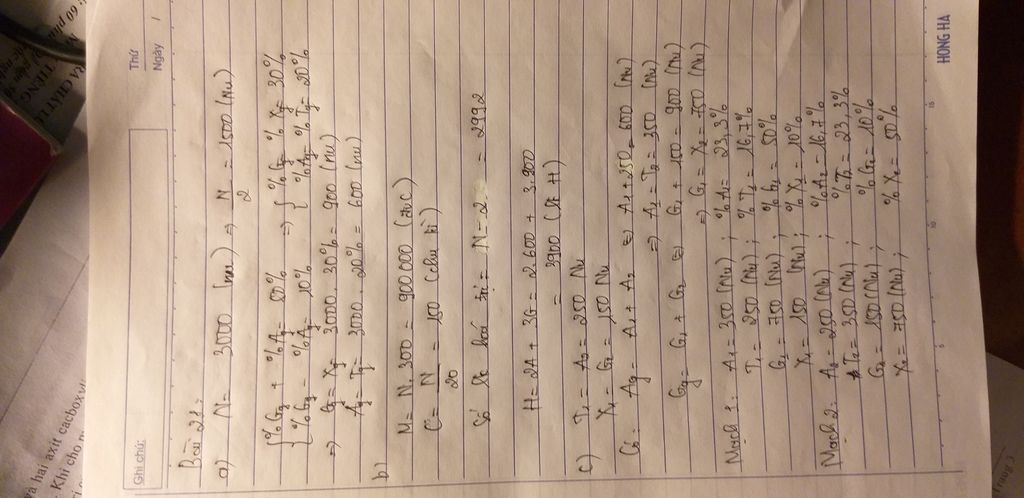 Ghi chú:
Thứ
Ngày
Bài 21:
a) N = 3000 (nu) => N/2 = 1500 (nu)
{ %Gg + %Ag = 50% => { %Gg = %Xg = 30%
{ %Gg - %Ag = 10% { %Ag = %Tg = 20%
=> Gg = Xg = 3000 . 30% = 900 (nu)
Ag = Tg = 3000 . 20% = 600 (nu)
b) M = N. 300 = 900 000 (đvC)
C = N/20 = 150 (chu kì)
Số lk hoá trị = N - 2 = 2992
H = 2A + 3G = 2.600 + 3.900
= 3900 (lk H)
c) T1 = A2 = 250 Nu
X1 = G2 = 150 Nu
Có: Ag = A1 + A2 => A1 + 250 = 600 (Nu)
=> A1 = T2 = 350 (Nu)
Gg = G1 + G2 => G1 + 150 = 900 (Nu)
=> G1 = X2 = 750 (Nu)
Mạch 1: A1 = 350 (Nu) ; %A1 = 23,3%
T1 = 250 (Nu) ; %T1 = 16,7%
G1 = 750 (Nu) ; %G1 = 50%
X1 = 150 (Nu) ; %X1 = 10%
Mạch 2: A2 = 250 (Nu) ; %A2 = 16,7%
T2 = 350 (Nu) ; %T2 = 23,3%
G2 = 150 (Nu) ; %G2 = 10%
X2 = 750 (Nu) ; %X2 = 50%
5 10 15
HONG HA
và hai axit cacboxyl
Khi cho